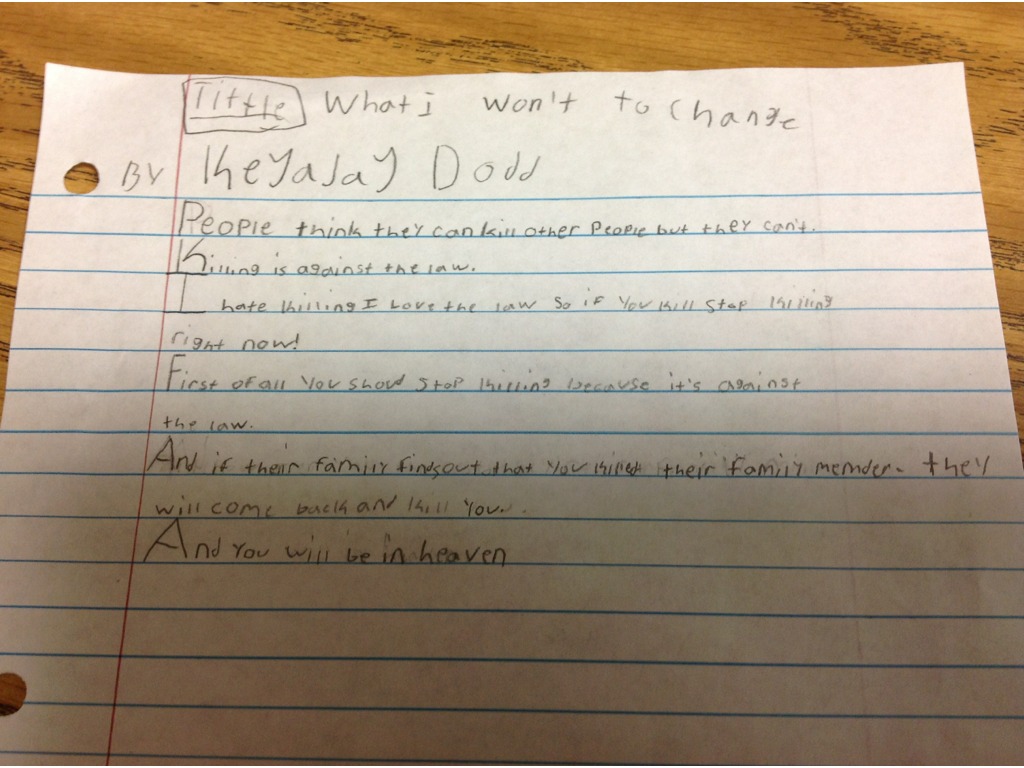 Tittle What i won't to change
By KeyaJay Dodd
People think they can kill other People but they can't.
Killing is against the law.
I hate killing I Love the law so if You kill stop killing
right now!
First of all You shoud stop killing because it's against
the law.
And if their family finds out that You killed their family memder. they
will come back and kill You.
And You will be in heaven